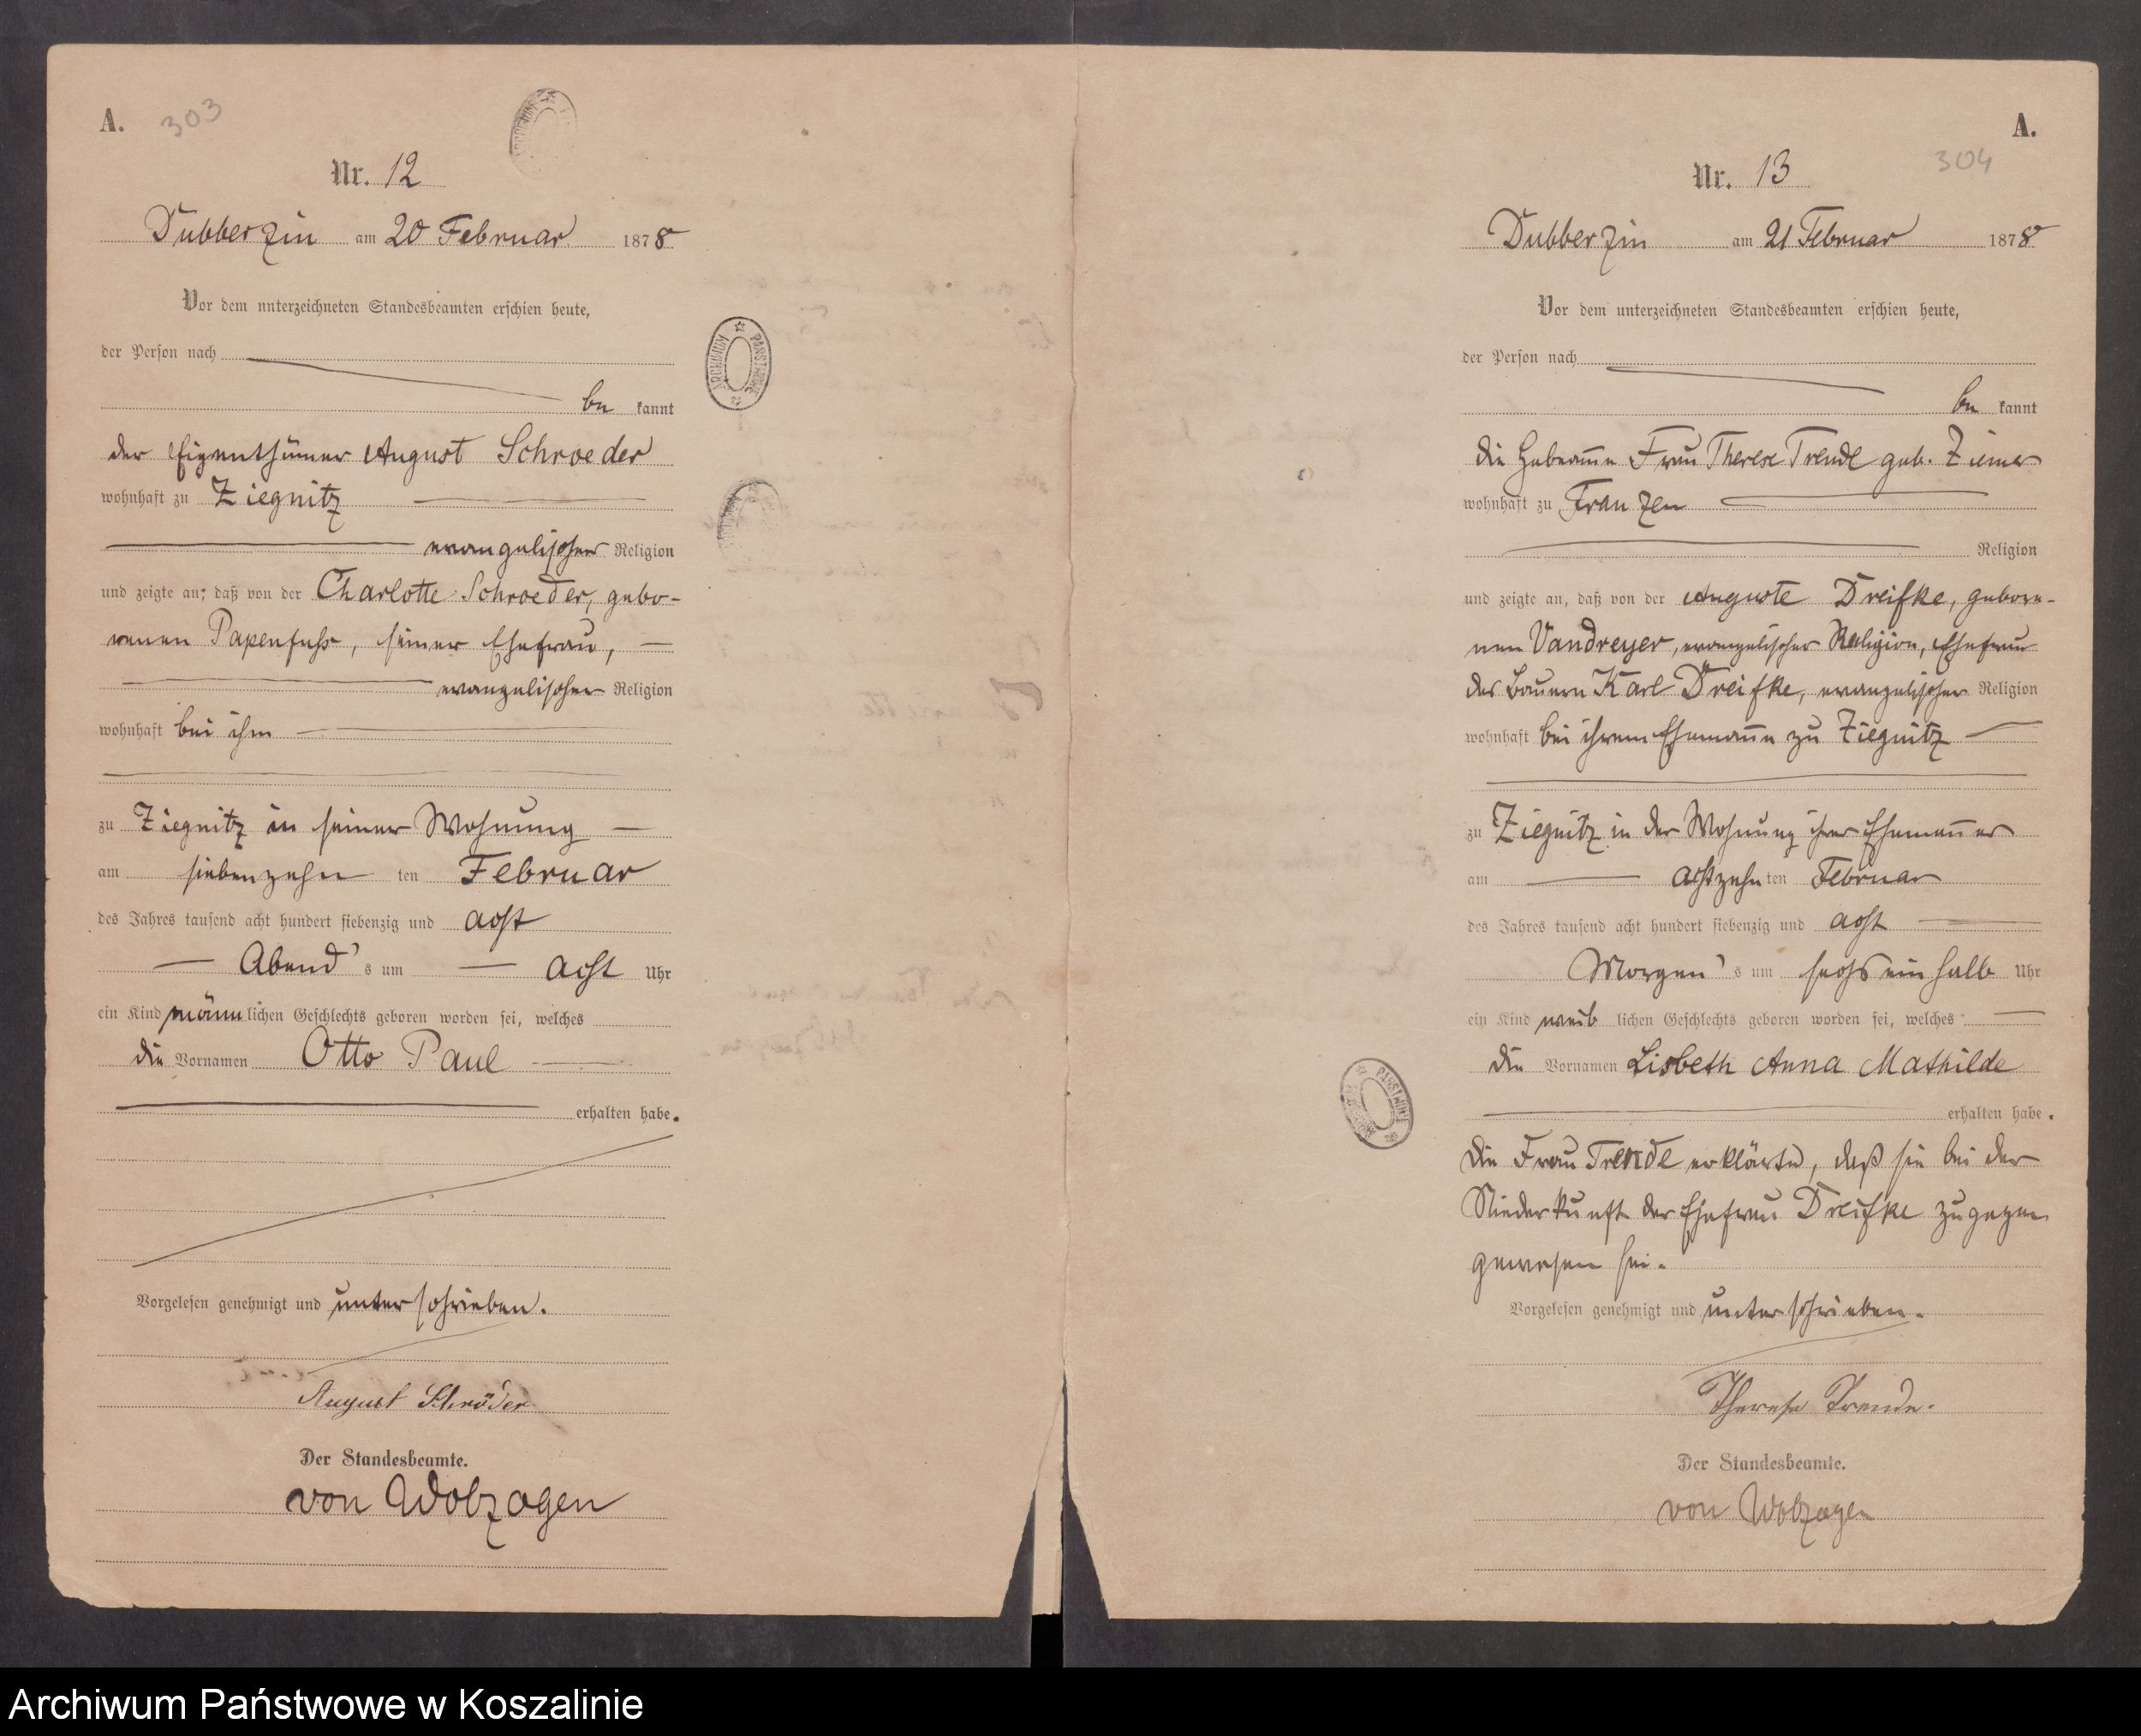 A.
303
Nr. 12
Dubberzin am 20 Februar 1878
Vor dem unterzeichneten Standesbeamten erschien heute,
der Person nach
be kannt
der Eigenthümer August Schroeder
wohnhaft zu Ziegnitz
evangelischer Religion
und zeigte an, daß von der Charlotte Schroeder, gebo-
renen Papenfuss, seiner Ehefrau,
evangelischer Religion
wohnhaft bei ihm
zu Ziegnitz in seiner Wohnung
am siebenzehn ten Februar
des Jahres tausend acht hundert siebenzig und acht
Abend's um acht Uhr
ein Kind männlichen Geschlechts geboren worden sei, welches
die Vornamen Otto Paul
erhalten habe.
Vorgelesen genehmigt und unterschrieben.
August Schröder
Der Standesbeamte.
von Wolzogen
ARCHIWUM PAŃSTWOWE
A.
304
Nr. 13
Dubberzin am 21 Februar 1878
Vor dem unterzeichneten Standesbeamten erschien heute,
der Person nach
be kannt
die Hebeamme Frau Therese Trende geb. Ziemer
wohnhaft zu Franzen
Religion
und zeigte an, daß von der Auguste Dreifke, gebore-
nen Vandreyer, evangelischer Religion, Ehefrau
des Bauern Karl Dreifke, evangelischer Religion
wohnhaft bei ihrem Ehemanne zu Ziegnitz
zu Ziegnitz in der Wohnung ihres Ehemannes
am achtzehn ten Februar
des Jahres tausend acht hundert siebenzig und acht
Morgen's um sechs ein halb Uhr
ein Kind weib lichen Geschlechts geboren worden sei, welches
die Vornamen Lisbeth Anna Mathilde
erhalten habe.
Die Frau Trende erklärte, daß sie bei der
Niederkunft der Ehefrau Dreifke zugegen
gewesen sei.
Vorgelesen genehmigt und unterschrieben.
Therese Trende.
Der Standesbeamte.
von Wolzogen
Archiwum Państwowe w Koszalinie